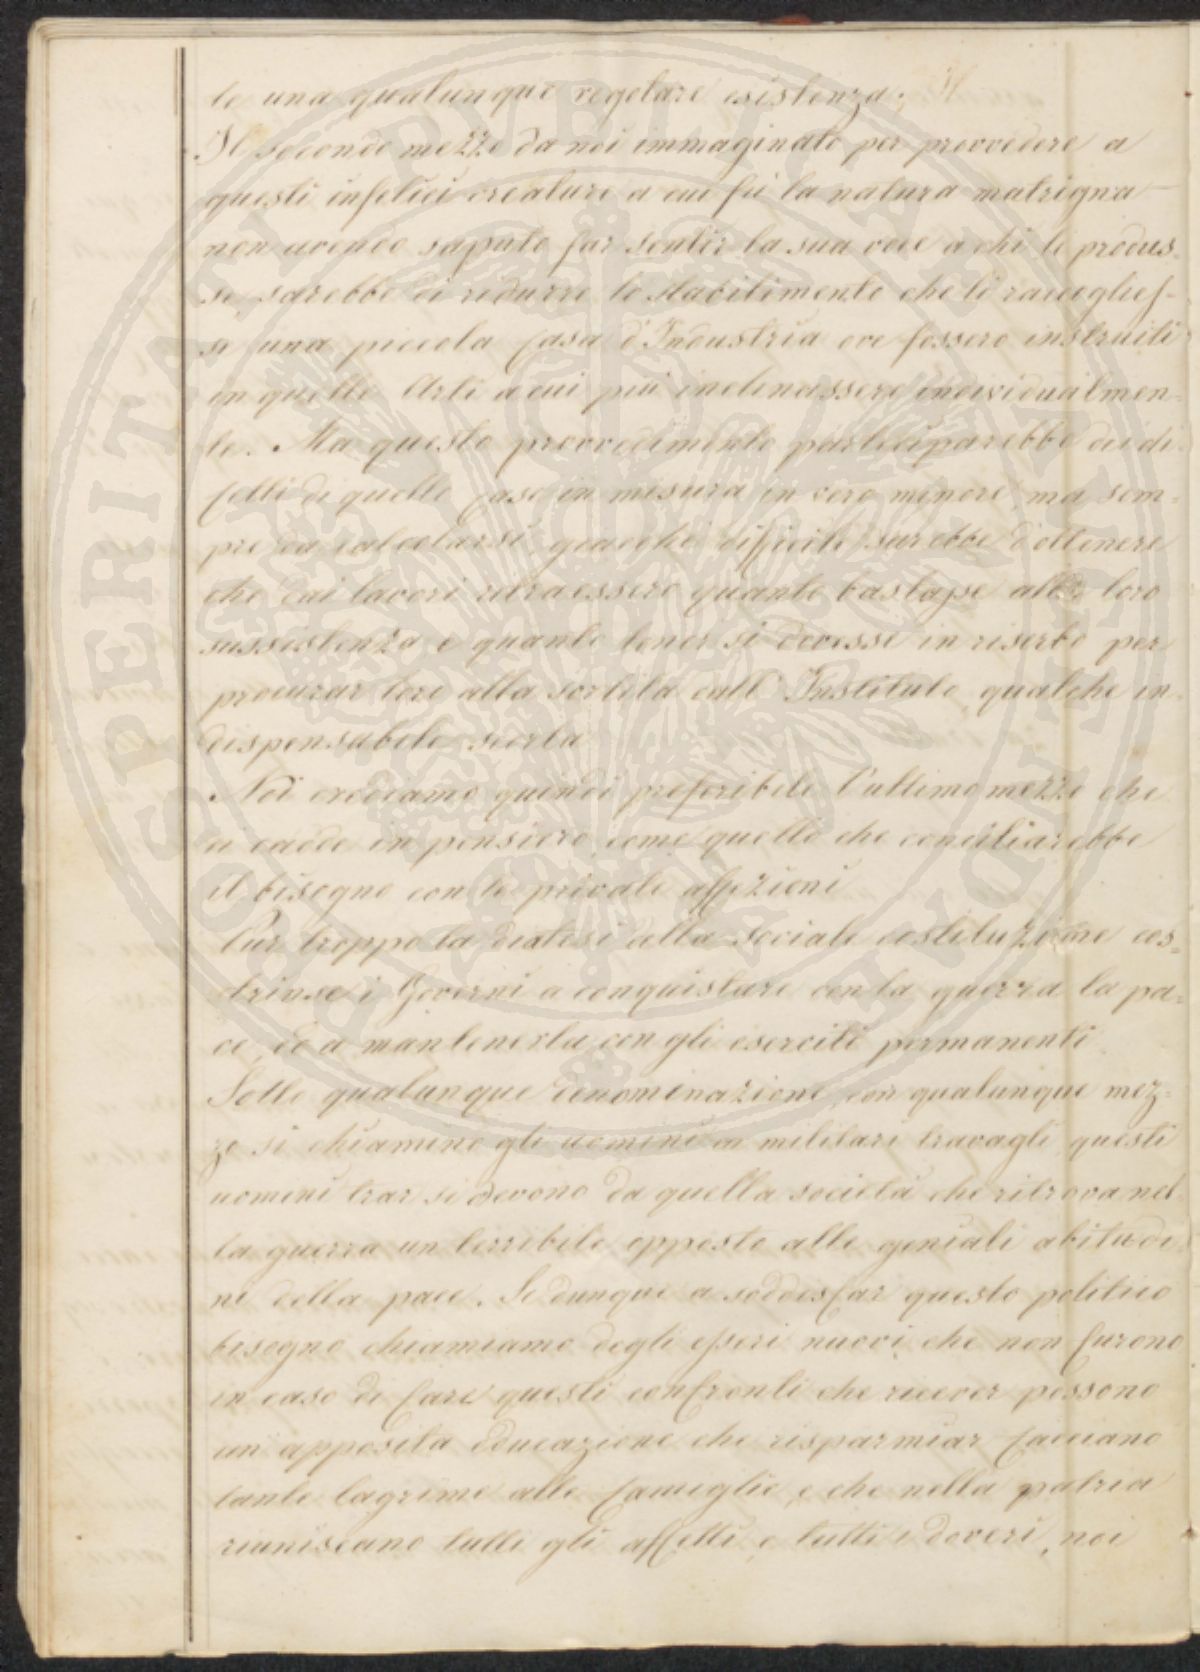 te una qualunque regolare esistenza.
Il secondo mezzo da noi immaginato per provvedere a
questi infelici creature a cui fu la natura matrigna
non avendo saputo far sentir la sua voce a chi le produs-
se, sarebbe di ridurre lo stabilimento che li raccoglies-
se una piccola Casa d'Industria ove fossero instruiti
in quelle Arti a cui più inclinassero individualmen-
te. Ma questo provvedimento parteciparebbe dei di-
fetti di quelle case in misura in vero minore, ma sem-
pre da calcolarsi, giacché difficile sarebbe d'ottenere
che dai lavori ritraessero quanto bastasse alla loro
sussistenza e quanto tener si dovesse in riserbo per
procurar loro alla sortita dall'Instituto qualche in-
dispensabile scorta
Noi crediamo quindi preferibile l'ultimo mezzo che
ci cadde in pensiero, come quello che conciliarebbe
il bisogno con le private affezioni
Pur troppo la diatesi della sociale costituzione cos-
trinse i Governi a conquistare con la guerra la pa-
ce, ed a mantenerla con gli eserciti permanenti.
Sotto qualunque denominazione, con qualunque mez-
zo si chiamino gli uomini ai militari travagli, questi
uomini trar si devono da quella società che ritrova nel-
la guerra un terribile opposto alle geniali abitudi-
ni della pace. Se dunque a soddisfar questo politico
bisogno chiamiamo degli esseri nuovi, che non furono
in caso di fare questi confronti che ricever possono
un apposita educazione che risparmiar facciano
tante lagrime alle famiglie, e che nella patria
riuniscano tutti gli affetti, e tutti i doveri, noi
PROSPERITATI PUBLICAE AUGENDAE